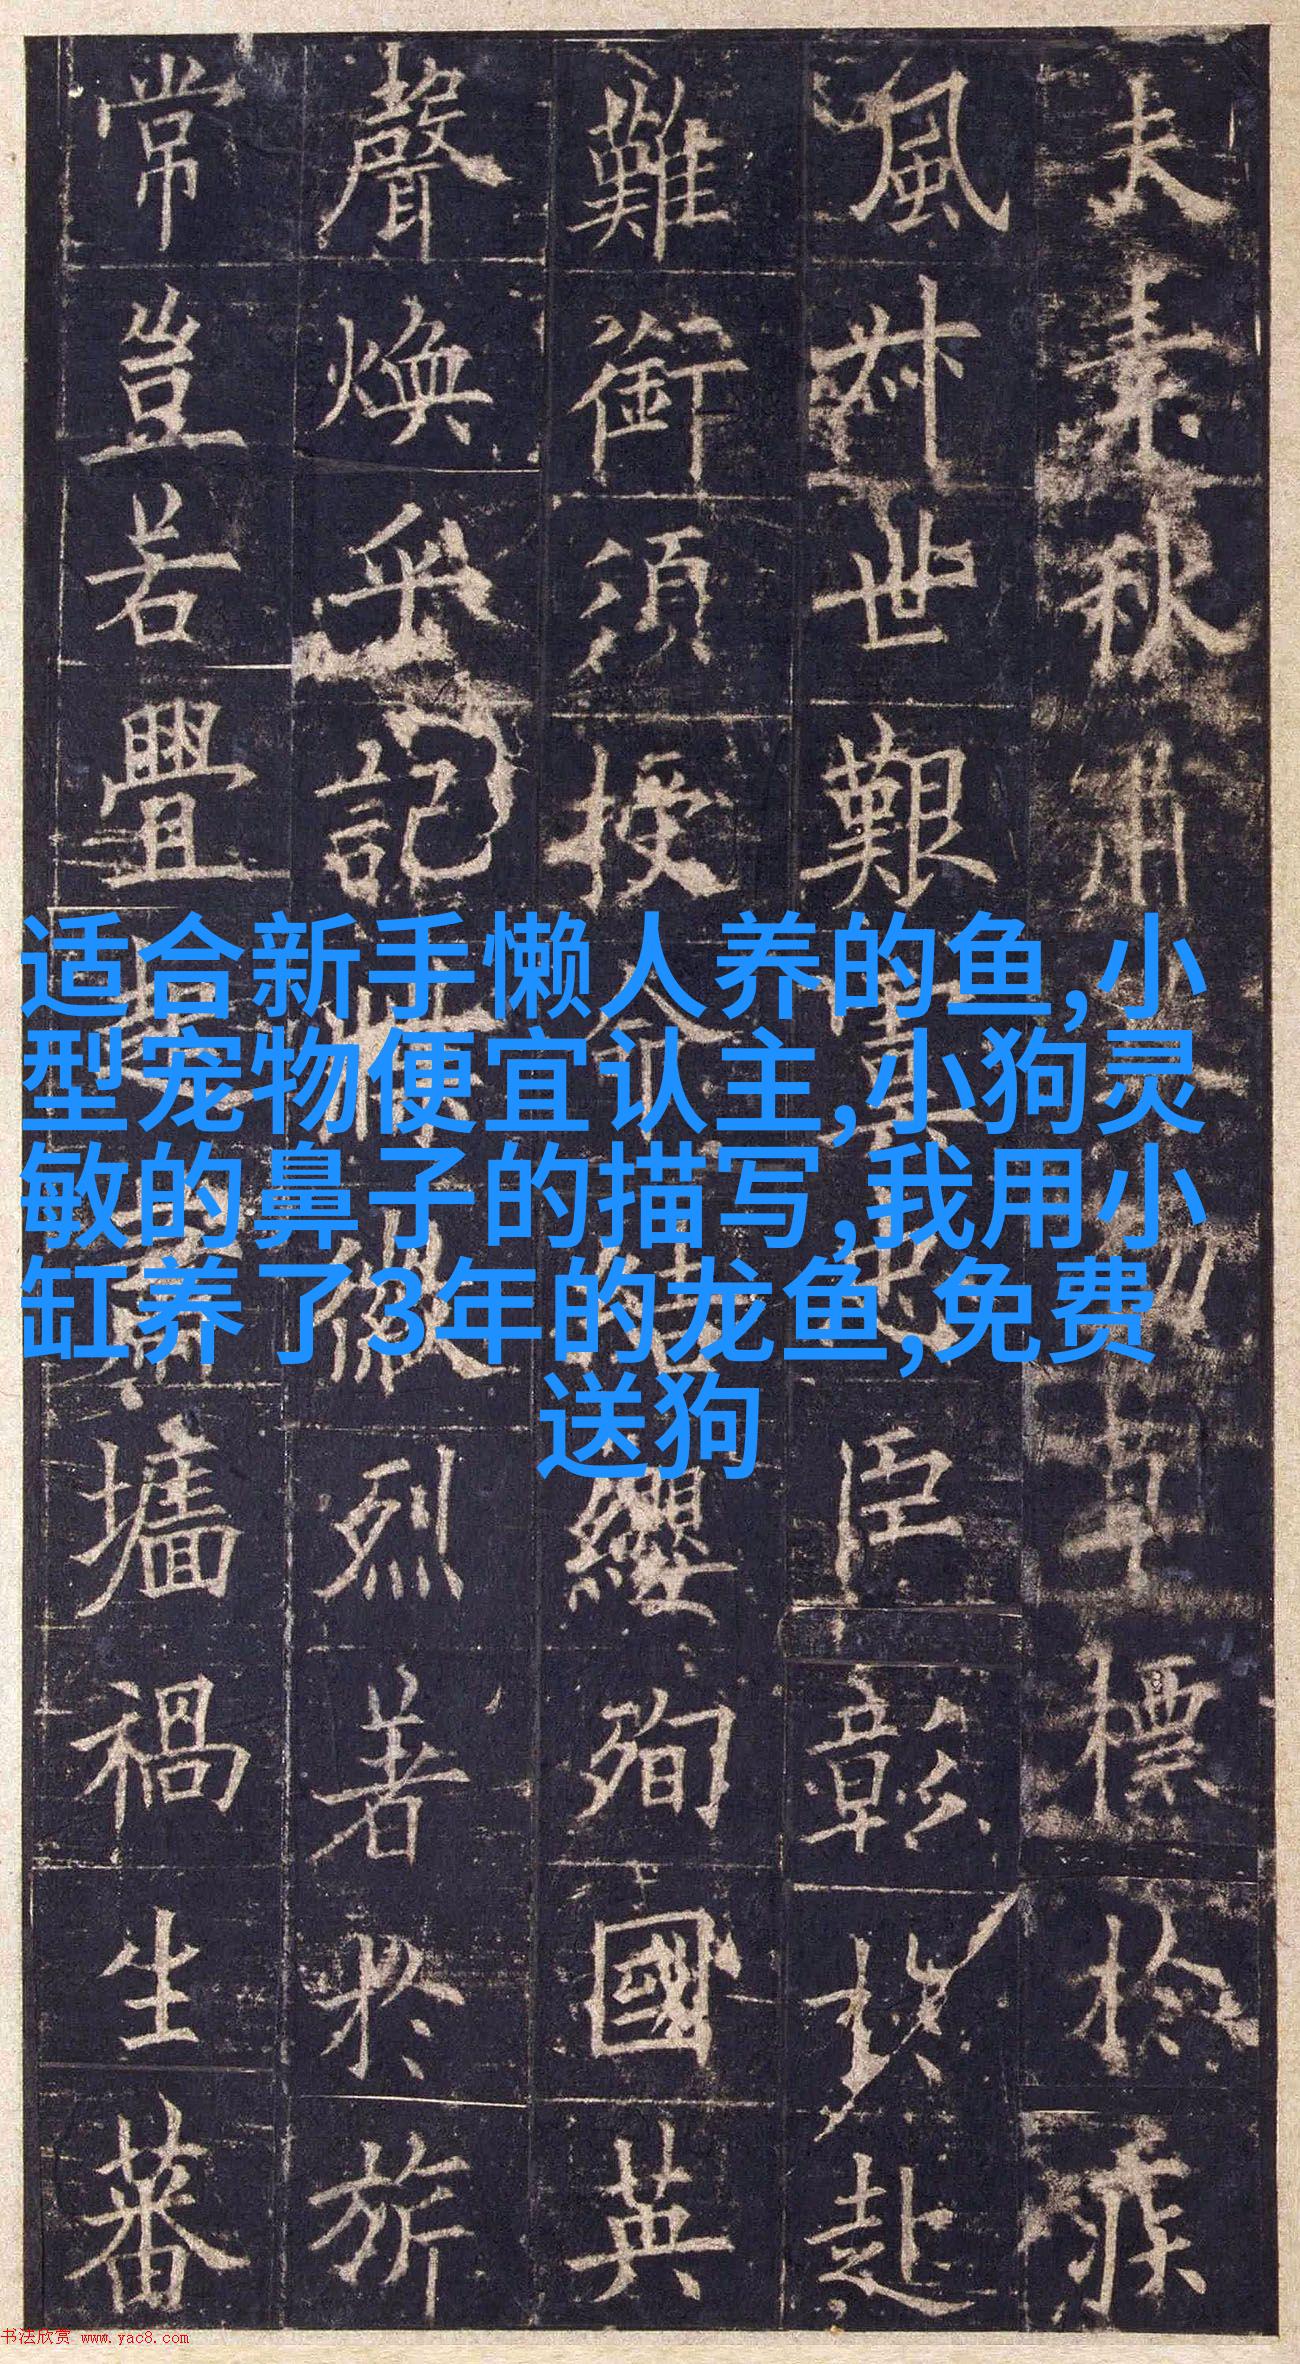 夫素秋肅勁草標於疾
風叔世艱虞忠臣彰於赴
難銜須授命結纓殉國英
聲煥乎記牒徽烈著於旂
常豈若釁起蕭墻禍生蕃
适合新手懒人养的鱼,小
型宠物便宜认主,小狗灵
敏的鼻子的描写,我用小
缸养了3年的龙鱼,免费
送狗
书法欣赏 www.yac8.com